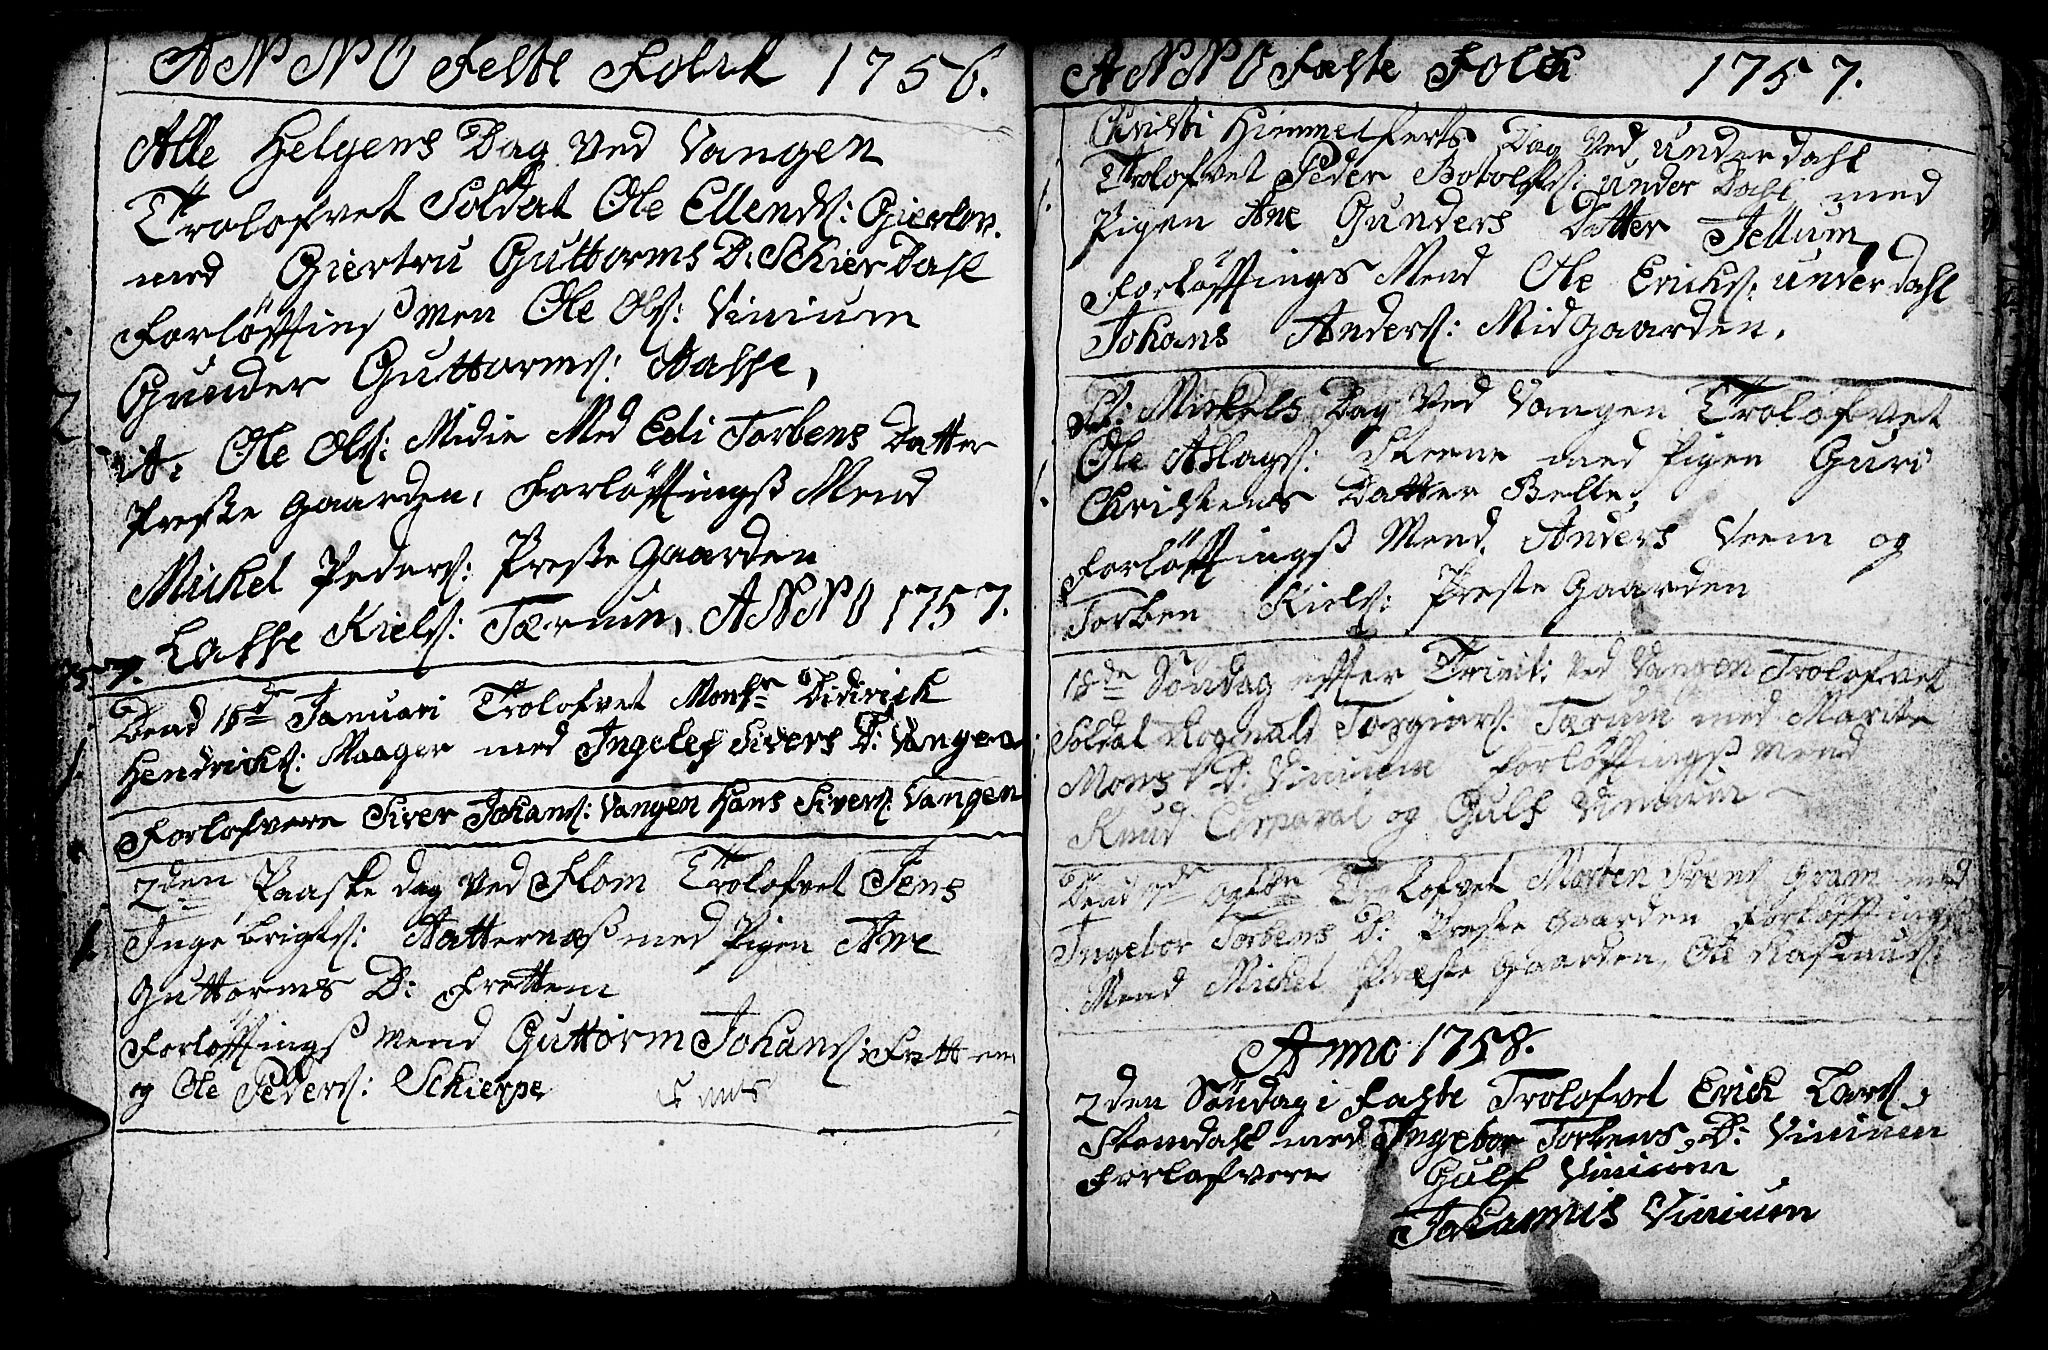 ANNO Feste Folck 1756.
Alle Helgens Dag Ved Vangen
Trolofvet Soldat Ole Ellends: Gierlov.
med Giertru Guttorms D: Schierdahl
Forløftings men Ole Ols: Vinium
Gunder Guttorms: Aasse,
2
it. Ole Ols: Midie Med Eeli Torbens Datter
Preste Gaarden, Forløftingß Mend
Michel Peders: Preste Gaarden
Lasse Kiels: Tærum, ANNO 1757.
Dend 16de Januari Trolofvet Monsr Didrick
Hendricks: Maager med Ingelef Sivers D: Vangen
1.
Forlofvere Siver Johans: Vangen Hans Sivers: Vangen
2den Paaske dag Ved Flom Trolofvet Jens
Inge brigts: Natternæß med Pigen Ane
1.
Guttorms D: Frettem
Forløftingß Mend Guttorm Johans: Frettem
og Ole Peders: Schierpe
ANNO Fæste Folck 1757.
Christi Himmelferts Dag Ved underdahl
Trolofvet Peder Botolfs: under Dahl med
1.
Pigen Ane Gunders Datter Jellum,
Forløftings Mend Ole Ericks: underdahl
Johans Anders: Midgaarden.
St: Mickels Dag Ved Vangen Trolofvet
Ole Aslags: Steene med Pigen Guri
1.
Christens Datter Belle,
Forløftingß Mend. Anders Veem og
Torben Kiels: Preste Gaarden
18de Søndag efter Trinit: Ved Vangen Trolofvet
Soldat Rognald Torgiers: Tærum med Marite
Mons D: Vinium Forløftingß Mend
Knud Corporal og Gulf Vinium
Dend 7de Trolofvet Morten Svens Gram med
Ingebor Torbens D: Preste Gaarden Forløftings
Mend Michel Præste Gaarden, Ole Rasmus:
Anno 1758.
2den Søndag i Faste Trolofvet Erick Lars:
Stemdahl med Ingebor Torbens, D: Vinium
Forlofvere Gulf Vinium
Johannis Vinium